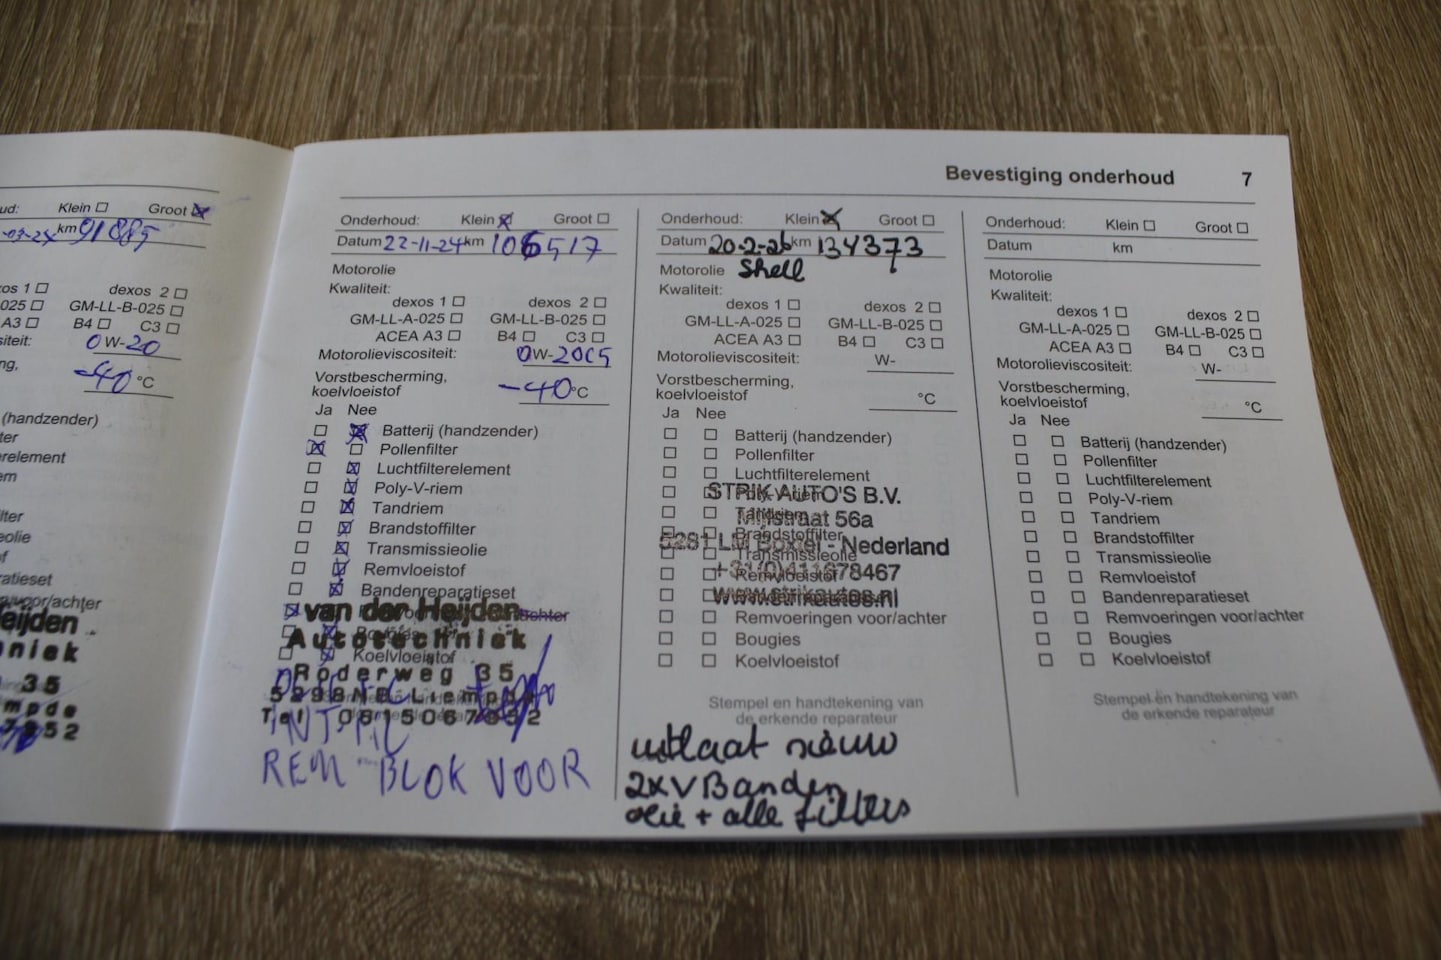 Bevestiging onderhoud 7
ud: Klein Groot
-03-24 km 91885
xos 1 dexos 2
025 GM-LL-B-025
A3 B4 C3
siteit: 0W-20
ng, -40 °C
(handzender)
ter
relement
em
lter
eolie
of
aratieset
voor/achter
eijden
niek
35
mpde
7852
Onderhoud: Klein Groot
Datum 22-11-24 km 106517
Motorolie
Kwaliteit:
dexos 1 dexos 2
GM-LL-A-025 GM-LL-B-025
ACEA A3 B4 C3
Motorolieviscositeit: 0W-20C5
Vorstbescherming,
koelvloeistof -40 °C
Ja Nee
Batterij (handzender)
Pollenfilter
Luchtfilterelement
Poly-V-riem
Tandriem
Brandstoffilter
Transmissieolie
Remvloeistof
Bandenreparatieset
van der Heijden achter
Autotechniek
Bougies
Koelvloeistof
Roderweg 35
5298NB Liempde
Tel
REM BLOK VOOR
Onderhoud: Klein Groot
Datum 20-2-26 km 134373
Motorolie Shell
Kwaliteit:
dexos 1 dexos 2
GM-LL-A-025 GM-LL-B-025
ACEA A3 B4 C3
Motorolieviscositeit: W-
Vorstbescherming,
koelvloeistof °C
Ja Nee
Batterij (handzender)
Pollenfilter
Luchtfilterelement
STRIK AUTO'S B.V.
Poly-V-riem
Tandriem
Mijlstraat 56a
Brandstoffilter
5281 LM Boxtel - Nederland
Transmissieolie
+31(0)411678467
Remvloeistof
www.strikautos.nl
Remvoeringen voor/achter
Bougies
Koelvloeistof
Stempel en handtekening van
de erkende reparateur
uitlaat nieuw
2x V Banden
olie + alle filters
Onderhoud: Klein Groot
Datum km
Motorolie
Kwaliteit:
dexos 1 dexos 2
GM-LL-A-025 GM-LL-B-025
ACEA A3 B4 C3
Motorolieviscositeit: W-
Vorstbescherming,
koelvloeistof °C
Ja Nee
Batterij (handzender)
Pollenfilter
Luchtfilterelement
Poly-V-riem
Tandriem
Brandstoffilter
Transmissieolie
Remvloeistof
Bandenreparatieset
Remvoeringen voor/achter
Bougies
Koelvloeistof
Stempel en handtekening van
de erkende reparateur